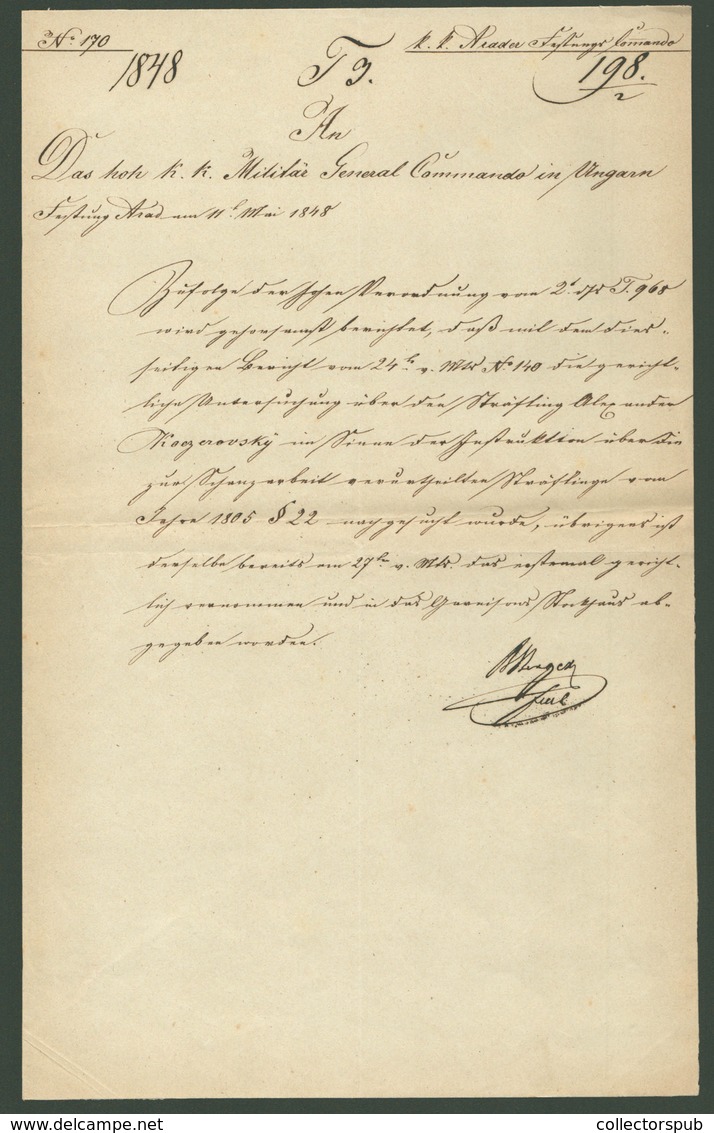 No 170
k. k. Arader Festungs Comando
1848 T 3. 198./2
An
Das hoh k. k. Militär General Commando in Ungarn
Festung Arad am 11t Mai 1848
Zufolge der hohen Verordnung vom 2t d/s T. 968
wird gehorsamst berichtet, daß mit dem dies-
seitigen Bericht vom 24tn v. Mts No 140 die gericht-
liche Untersuchung über den Sträfling Alexander
Koczerovský im Sinne der Instruktion über die
zur Schanzarbeit verurtheilten Sträflinge vom
Jahre 1805 § 22 nachgesucht wurde, übrigens ist
derselbe bereits am 27tn v. Mts. das erstemal gericht-
lich vernommen und in das Garnisons Stockhaus ab-
gegeben worden.
collectorspub